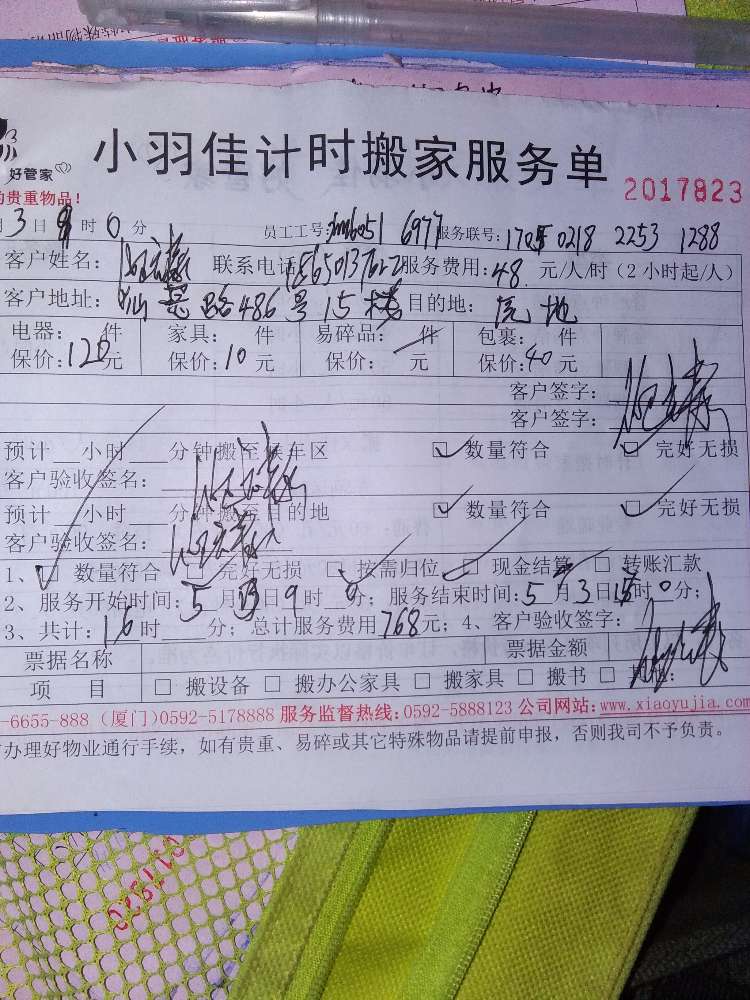 小羽佳计时搬家服务单
好管家
的贵重物品！
2017823
月3日9时0分 员工工号: 6051 6977 服务联号: 1705 0218 2253 1288
客户姓名: 联系电话 服务费用:48 元/人/时（2小时起/人）
客户地址: 仙岳路486号15楼 目的地: 原地
电器: 件 家具: 件 易碎品: 件 包裹: 件
保价:120元 保价:10元 保价: 元 保价:40元
客户签字:
客户签字:
预计__小时__分钟搬至候车区 □ 数量符合 □ 完好无损
客户验收签名:
预计__小时__分钟搬至目的地 □ 数量符合 □ 完好无损
客户验收签名:
1、□ 数量符合 □ 完好无损 □ 按需归位 □ 现金结算 □ 转账汇款
2、服务开始时间:5月3日9时0分；服务结束时间:5月3日 时0分；
3、共计:16时__分；总计服务费用768元；4、客户验收签字:
票据名称 票据金额
项 目 □ 搬设备 □ 搬办公家具 □ 搬家具 □ 搬书 □ 其他:
-6655-888（厦门）0592-5178888 服务监督热线:0592-5888123 公司网站:www.xiaoyujia.com
办理好物业通行手续，如有贵重、易碎或其它特殊物品请提前申报，否则我司不予负责。